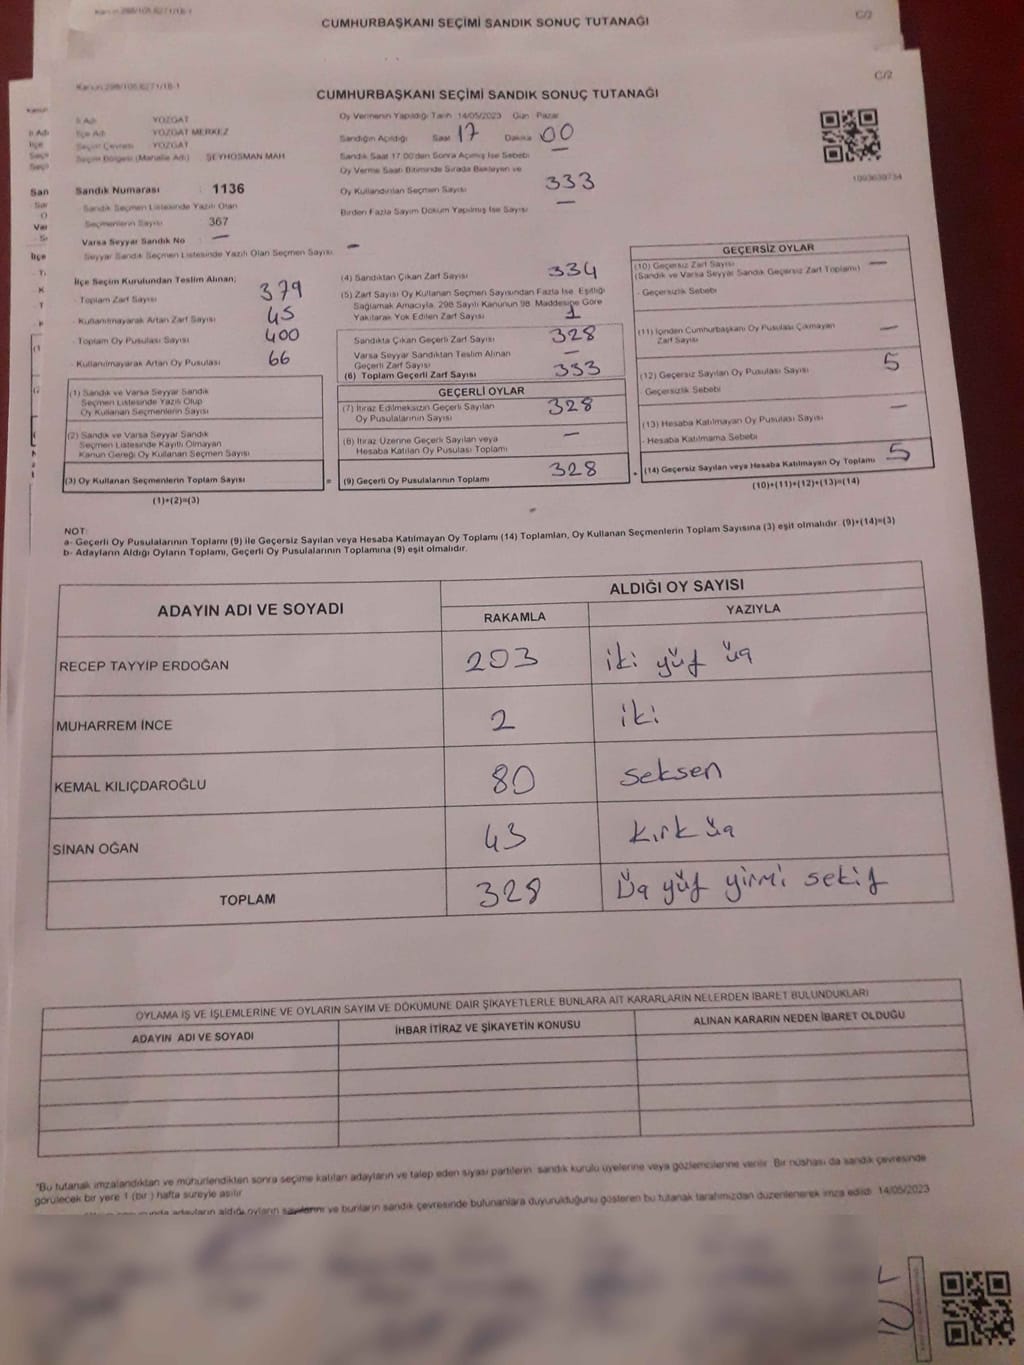 CUMHURBAŞKANI SEÇİMİ SANDIK SONUÇ TUTANAĞI
C/2
C/2
CUMHURBAŞKANI SEÇİMİ SANDIK SONUÇ TUTANAĞI
İl Adı YOZGAT
İlçe Adı YOZGAT MERKEZ
Seçim Çevresi YOZGAT
Seçim Bölgesi (Mahalle Adı) ŞEYHOSMAN MAH
Sandık Numarası : 1136
Sandık Seçmen Listesinde Yazılı Olan
Seçmenlerin Sayısı 367
Varsa Seyyar Sandık No : —
Seyyar Sandık Seçmen Listesinde Yazılı Olan Seçmen Sayısı —
Oy Vermenin Yapıldığı Tarih 14/05/2023 Gün Pazar
Sandığın Açıldığı Saat 17 Dakika 00
Sandık Saat 17:00'den Sonra Açılmış İse Sebebi —
Oy Verme Saati Bitiminde Sırada Bekleyen ve
Oy Kullandırılan Seçmen Sayısı 333
Birden Fazla Sayım Döküm Yapılmış İse Sayısı —
1093639734
İlçe Seçim Kurulundan Teslim Alınan;
- Toplam Zarf Sayısı 379
- Kullanılmayarak Artan Zarf Sayısı 45
- Toplam Oy Pusulası Sayısı 400
- Kullanılmayarak Artan Oy Pusulası 66
(1) Sandık ve Varsa Seyyar Sandık
Seçmen Listesinde Yazılı Olup
Oy Kullanan Seçmenlerin Sayısı
(2) Sandık ve Varsa Seyyar Sandık
Seçmen Listesinde Kayıtlı Olmayan
Kanun Gereği Oy Kullanan Seçmen Sayısı
(3) Oy Kullanan Seçmenlerin Toplam Sayısı
(1)+(2)=(3)
(4) Sandıktan Çıkan Zarf Sayısı 334
(5) Zarf Sayısı Oy Kullanan Seçmen Sayısından Fazla İse, Eşitliği
Sağlamak Amacıyla, 298 Sayılı Kanunun 98. Maddesine Göre
Yakılarak Yok Edilen Zarf Sayısı 1
Sandıkta Çıkan Geçerli Zarf Sayısı 328
Varsa Seyyar Sandıktan Teslim Alınan
Geçerli Zarf Sayısı —
(6) Toplam Geçerli Zarf Sayısı 333
GEÇERLİ OYLAR
(7) İtiraz Edilmeksizin Geçerli Sayılan
Oy Pusulalarının Sayısı 328
(8) İtiraz Üzerine Geçerli Sayılan veya
Hesaba Katılan Oy Pusulası Toplamı —
= (9) Geçerli Oy Pusulalarının Toplamı 328
GEÇERSİZ OYLAR
(10) Geçersiz Zarf Sayısı —
(Sandık ve Varsa Seyyar Sandık Geçersiz Zarf Toplamı)
- Geçersizlik Sebebi
(11) İçinden Cumhurbaşkanı Oy Pusulası Çıkmayan
Zarf Sayısı —
(12) Geçersiz Sayılan Oy Pusulası Sayısı 5
Geçersizlik Sebebi
(13) Hesaba Katılmayan Oy Pusulası Sayısı —
- Hesaba Katılmama Sebebi
+ (14) Geçersiz Sayılan veya Hesaba Katılmayan Oy Toplamı 5
(10)+(11)+(12)+(13)=(14)
NOT:
a- Geçerli Oy Pusulalarının Toplamı (9) ile Geçersiz Sayılan veya Hesaba Katılmayan Oy Toplamı (14) Toplamları, Oy Kullanan Seçmenlerin Toplam Sayısına (3) eşit olmalıdır. (9)+(14)=(3)
b- Adayların Aldığı Oyların Toplamı, Geçerli Oy Pusulalarının Toplamına (9) eşit olmalıdır.
ADAYIN ADI VE SOYADI
ALDIĞI OY SAYISI
RAKAMLA YAZIYLA
RECEP TAYYİP ERDOĞAN 203 iki yüz üç
MUHARREM İNCE 2 iki
KEMAL KILIÇDAROĞLU 80 seksen
SİNAN OĞAN 43 kırk üç
TOPLAM 328 Üç yüz yirmi sekiz
OYLAMA İŞ VE İŞLEMLERİNE VE OYLARIN SAYIM VE DÖKÜMÜNE DAİR ŞİKAYETLERLE BUNLARA AİT KARARLARIN NELERDEN İBARET BULUNDUKLARI
ADAYIN ADI VE SOYADI İHBAR İTİRAZ VE ŞİKAYETİN KONUSU ALINAN KARARIN NEDEN İBARET OLDUĞU
"Bu tutanak imzalandıktan ve mühürlendikten sonra seçime katılan adayların ve talep eden siyasi partilerin sandık kurulu üyelerine veya gözlemcilerine verilir. Bir nüshası da sandık çevresinde
görülecek bir yere 1 (bir) hafta süreyle asılır.
adayların aldığı oyların sayılarını ve bunların sandık çevresinde bulunanlara duyurulduğunu gösteren bu tutanak tarafımızdan düzenlenerek imza edildi. 14/05/2023